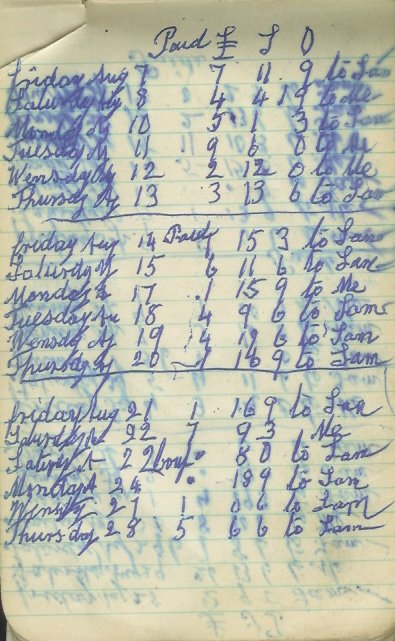 Paid £ S D
Friday Aug 7 7 11 9 to Sam
Saturday Ag 8 4 4 9 to Me
Monday Ag 10 5 1 3 to Sam
Tuesday Ag 11 9 6 0 to Me
Wensday Ag 12 2 12 0 to Me
Thursday Ag 13 3 13 6 to Sam
Friday Aug 14 Paid 15 3 to Sam
Saturday 15 6 11 6 to Sam
Monday 17 1 15 9 to Me
Tuesday Au 18 4 9 6 to Sam
Wensday Ag 19 4 6 to Sam
Thursday 20 1 9 to Sam
Friday Aug 21 1 16 9 to Sam
22 7 9 3 Me
22 8 0 to Sam
Monday 24 18 9 to Sam
1 6 to Sam
Thursday 28 5 6 6 to Sam